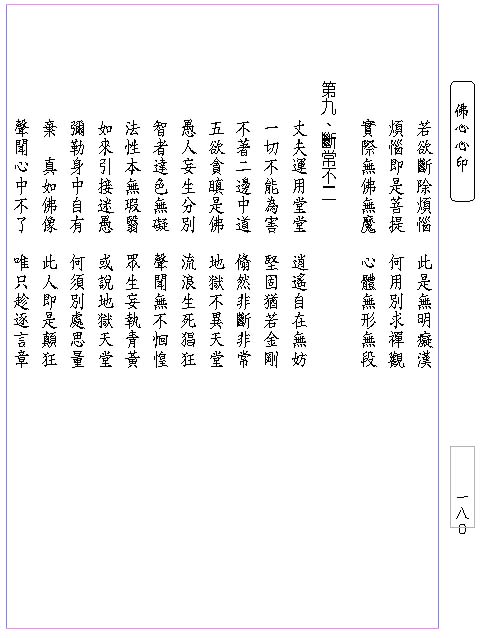 佛心心印
若欲斷除煩惱　此是無明癡漢
煩惱即是菩提　何用別求禪觀
實際無佛無魔　心體無形無段
第九、斷常不二
丈夫運用堂堂　逍遙自在無妨
一切不能為害　堅固猶若金剛
不著二邊中道　翛然非斷非常
五欲貪瞋是佛　地獄不異天堂
愚人妄生分別　流浪生死猖狂
智者達色無礙　聲聞無不恛惶
法性本無瑕翳　眾生妄執青黃
如來引接迷愚　或說地獄天堂
彌勒身中自有　何須別處思量
棄　真如佛像　此人即是顛狂
聲聞心中不了　唯只趁逐言章
一八0